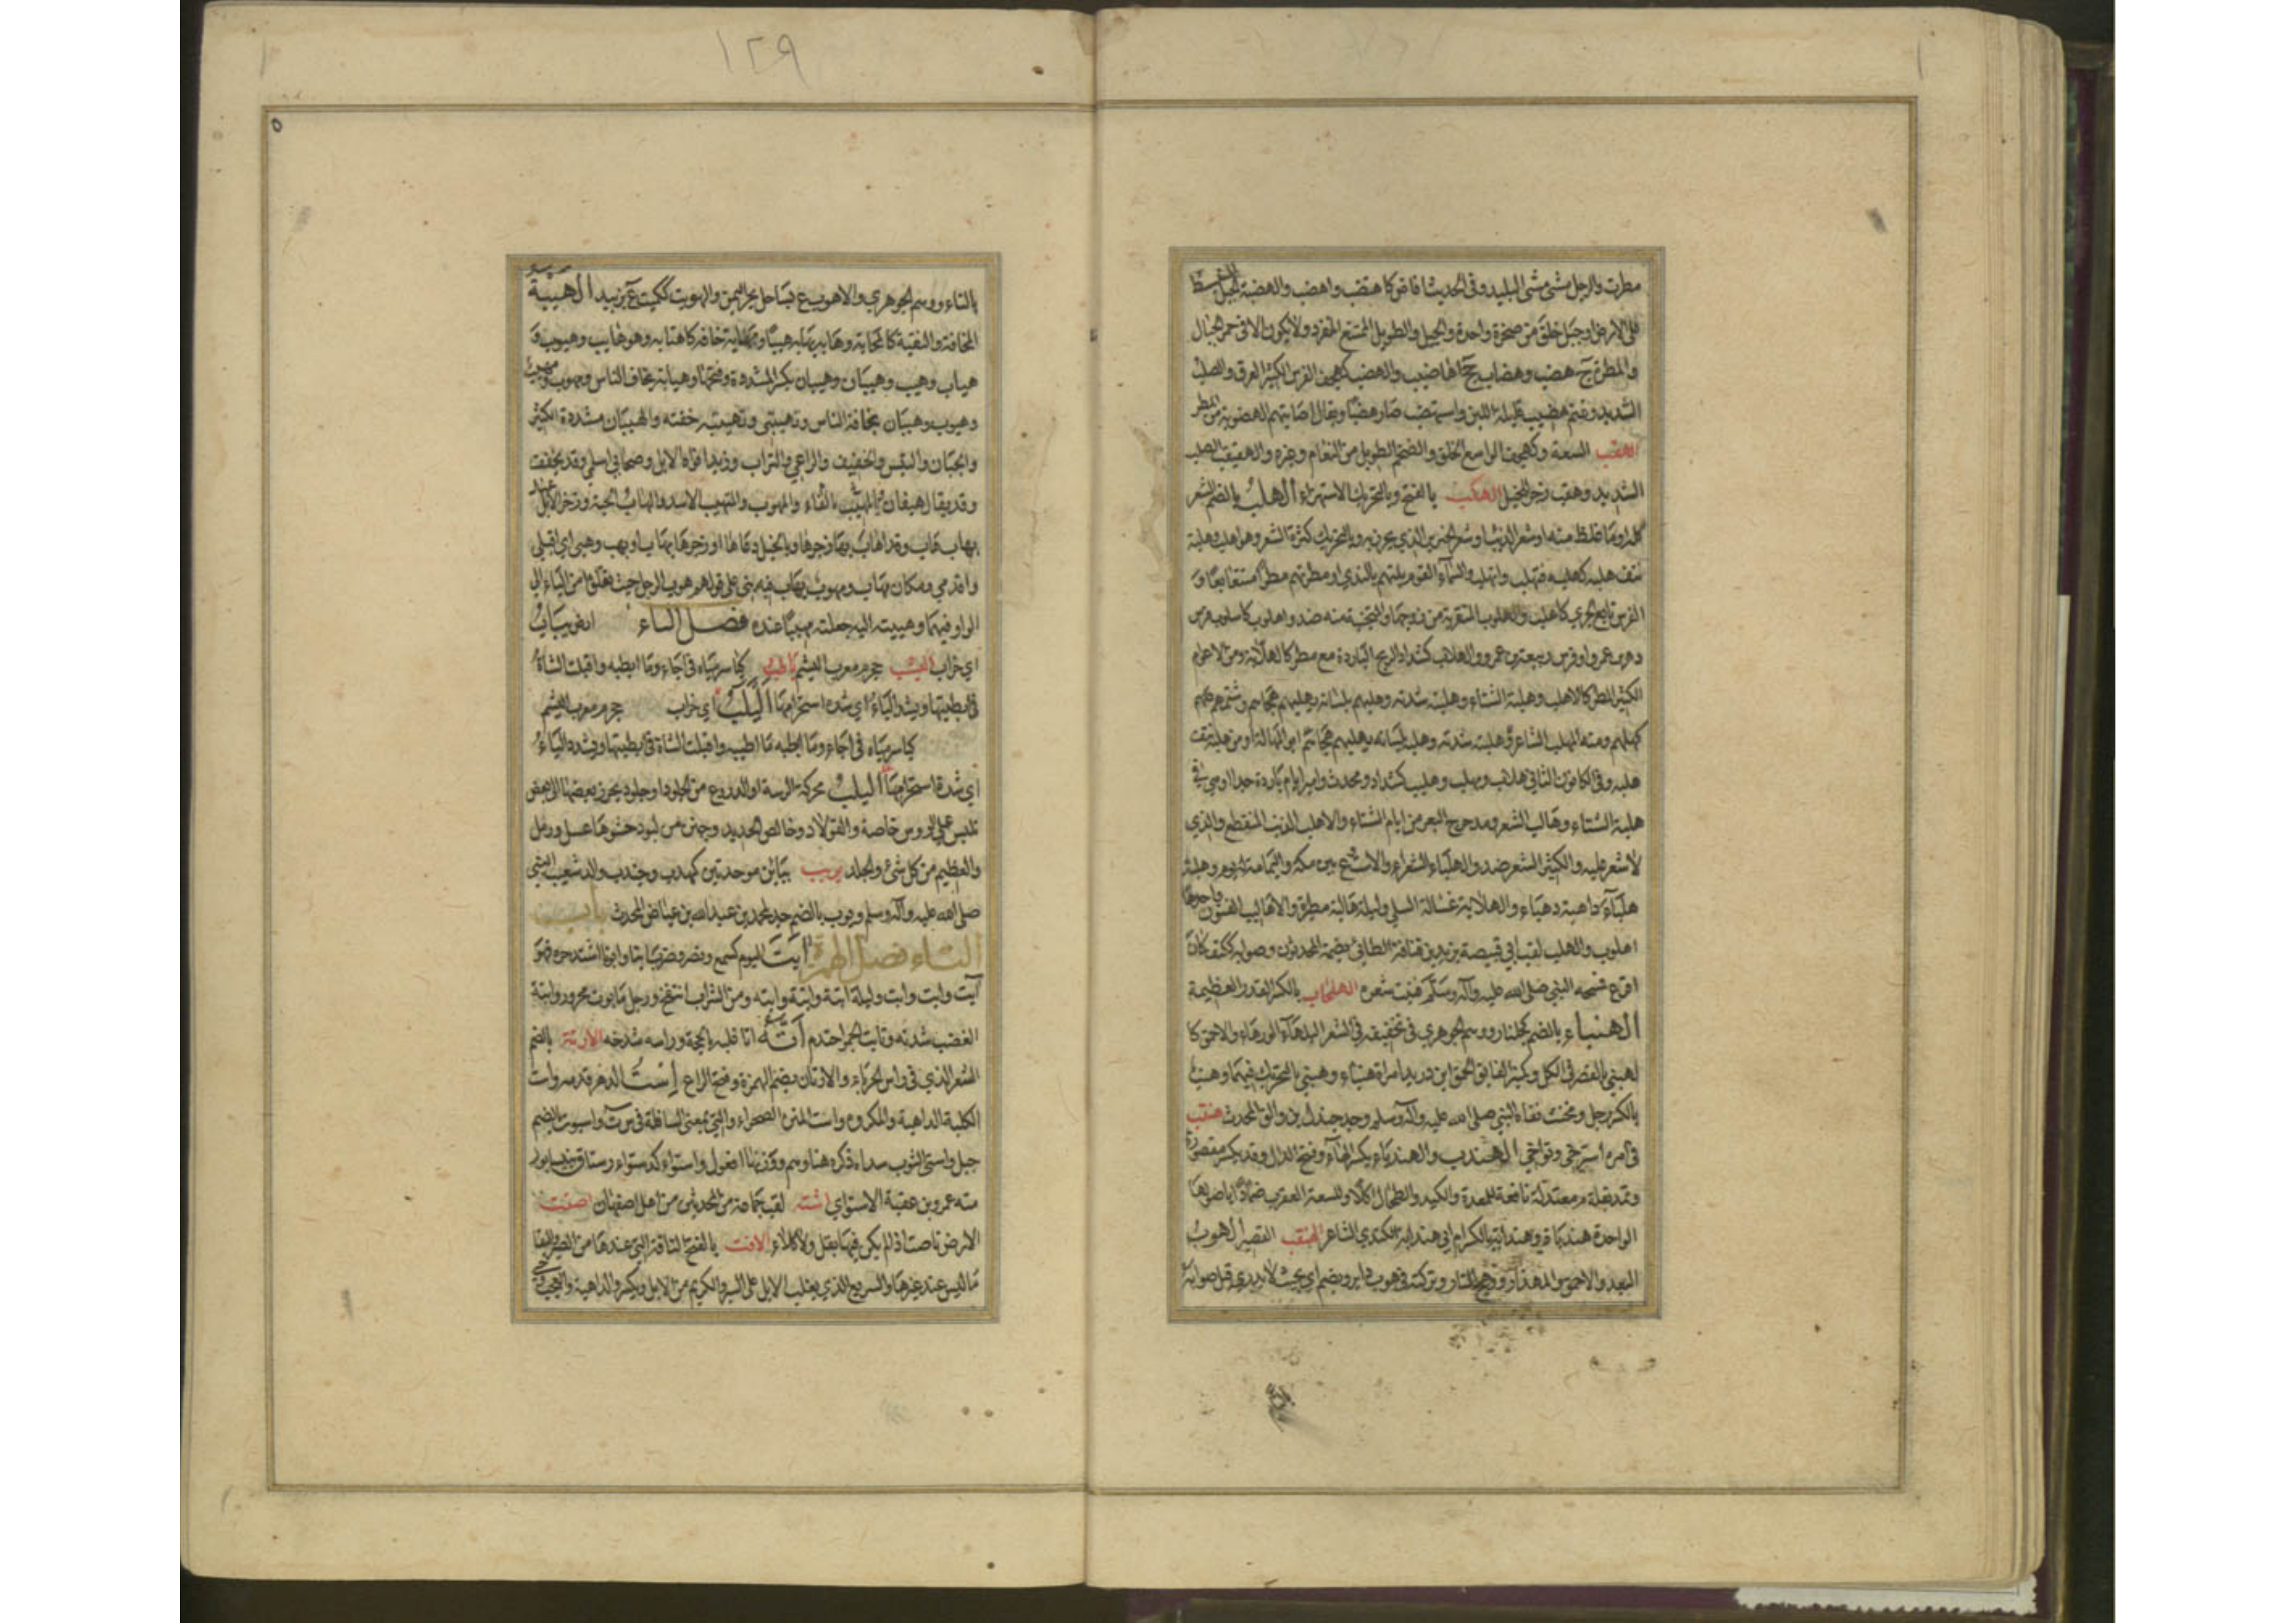 مطرت والرجل مشى مشى البليد وفى الحديث افاض كاهتضب واهضب والهضبة الجبل المنبسط
على الارض او جبل خلق من صخرة واحدة والجبل الطويل الممتنع المنفرد ولا يكون الا فى حمر الجبال
والمطرة ج هضب وهضاب جج اهاضيب والهضب كهجف الفرس الكثير العرق والصلب
الشديد وغنم هضيب قليلة اللبن واستهضب صار هضبا ويقال اصابتهم اهضوبة من المطر
الهقب السعة وكهجف الواسع الحلق والضخم الطويل من النعام وغيره والهقبقب الصلب
الشديد وهقب زجر للخيل الهكب بالفتح وبالتحريك الاستهزاء الهلب بالضم الشعر
كله او ما غلظ منه او شعر الذنب او شعر الخنزير الذي يخرز به وبالتحريك كثرة الشعر وهو اهلب وهلبه
نتف هلبه كهلبه فتهلب وانهلب والسماء القوم بلتهم بالندي او مطرتهم مطرا متتابعا و
الفرس تابع الجري كاهلب والهلوب المتقربة من زوجها والمتجنبة منه ضد واهلوب كاسلوب فرس
دهر بن عمرو او فرس ربيعة بن عمرو والهلاب كشداد الريح الباردة مع مطر كالهلابة ومن الاعوام
الكثير المطر كالاهلب وهلبة الشتاء وهلبته شدته وهلبهم بلسانه يهلبهم هجاهم وشتمهم
كهلبهم ومنه المهلب الشاعر وهلبة شدته وهلب بلسانه يهلبهم هجاهم ابو المهالبة او من هلبه نتف
هلبه وفى الكانون الثاني هلاب ومهلب وهليب كشداد ومحدث وامير ايام باردة جدا او هى فى
هلبة الشتاء وهالب الشعر ومدحرج البعر من ايام الشتاء والاهلب الذنب المنقطع والذي
لا شعر عليه والكثير الشعر ضد والهلباء الشعراء والاست ع بين مكة واليمامة له يوم وهلبة
هلباء داهية دهياء والهلابة غسالة السلي وليلة هالبة مطيرة والاهاليب الفنون واحدها
اهلوب والهلب لقب ابي قبيصة يزيد بن قنافة الطائى بضمة المحدثون وصوابه ككتف كان
اقرع فمسحه النبي صلى الله عليه وآله وسلم فنبت شعره الهلجاب بالكسر القدر العظيمة
الهنباء بالضم كجلنار ووهم الجوهري في تخفيفه فى الشعر البلهاء الورهاء والاحمق كا
لهنبى بالقصر فى الكل وكمنبر الفايق الحمق ابن دريد امراة هنباء وهنبى بالتحريك فيهما وهنب
بالكسر رجل ومخنث نفاه النبي صلى الله عليه وآله وسلم وجد جندل بن والق المحدث هنقب
فى امره استرخى وتواني الهندب والهندباء بكسر الهاء وفتح الدال وقد يكسر مقصورة
وتمد بقلة م معتدلة نافعة للمعدة والكبد والطحال اكلا وللسعة العقرب ضمادا باصولها
الواحدة هندباة وهندابة بالكسر ام ابي هندابة الكندي الشاعر الهنقب القصير الهوب
البعد والاحمق والمهذار ووهج النار وتركته فى هوب دابر ويضم اي بحيث لا يدري قيل صوابه
١٢٩
بالتاء ووهم الجوهري والاهوب ع بساحل بحر اليمن والهويب كزبير ع بزبيد الهيبة
المخافة والتقية كالمهابة وهابه يهابه هيبا ومهابة خافه كاهتابه وهو هايب وهيوب و
هياب وهيب وهيبان وهيبان بكسر المشددة وفتحها وهيابة يخاف الناس ومهوب ومهيب
وهيوب وهيبان يخافه الناس وتهيبني وتهيبته خفته والهيبان مشددة الكثير
والجبان والتيس والخفيف والراعي والتراب وزبد افواه الابل وصحابي اسلمي وقد يخفف
وقد يقال هيفان بالفاء والمهوب والمتهيب الاسد والهاب الحية وزجر الابل عند
بهاب هاب وقد اهاب بها زجرها وبالخيل دعاها او زجرها بهاب او بهب وهبى اي اقبلي
واقدمي ومكان مهاب ومهوب يهاب فيه بني على قولهم هوب الرجل حيث نقلوا من الياء الى
الواو فيهما وهيبته اليه جعلته مهيبا عنده فصل الياء ارض يباب
اي خراب اليشب حجر معرب اليشم ياطب كياسر مياه فى اجاء وما ايطبه واقبلت الشاة
فى ايطبتها ويشد الياء اي شدة استحرامها اليلب اي خراب حجر معرب اليشم
كياسر مياه فى اجاء وما ايطبه ما اطيبه واقبلت الشاة فى ايطبتها ويشدد الياء
اي شدة استحرامها اليلب محركة الترسة او الدروع من الجلود او جلود يخرز بعضها الى بعض
تلبس على الرؤس خاصة والفولاذ وخالص الحديد وجنن من لبود حشوها عسل ورمل
والعظيم من كل شئ والجلد يبيب بيائين موحدتين كمهدب وجندب والد شعيب النبي
صلى الله عليه وآله وسلم ويوب بالضم جد لمحمد بن عبد الله بن عياض المحدث باب
التاء فصل الهمزة ابت اليوم كسمع ونصر وضرب ابتا وابوتا اشتد حره فهو
آبت وابت وابت وليلة ابتة وابتة وابتة ومن الشراب انتفخ ورجل مابوت محرور وابتة
الغضب شدته وتابت الجمر احتدم اته اتا غلبه بالحجة وراسه شدخه الارتة بالضم
الشعر الذي فى راس الحرباء والارتان بضم الهمزة وفتح الراء است الدهر قدمه واست
الكلبة الداهية والمكروه واست المتن الصحراء والتي بمعنى السافلة فى س ت ه واستوت بالضم
جبل واستى الثوب سداه ذكره هنا وهم ووزنها افعول واستواء كدستواء رستاق بنيسابور
منه عمرو بن عقبة الاستواي اشته لقب جماعة من المحدثين من اهل اصفهان اصتت
الارض تاصت اذ لم يكن فيها بقل ولا كلاء الافت بالفتح الناقة التي عندها من الصبر والبقا
ما ليس عند غيرها والسريع الذي يغلب الابل على السير والكريم من الابل ويكسر والداهية والعجب